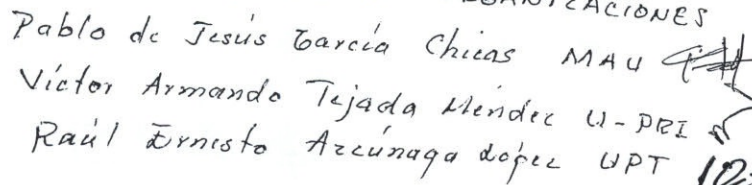 Pablo de Jesús García Chicas MAU
Víctor Armando Tejada Méndez U-PRI
Raúl Ernesto Azcúnaga López UPT 10